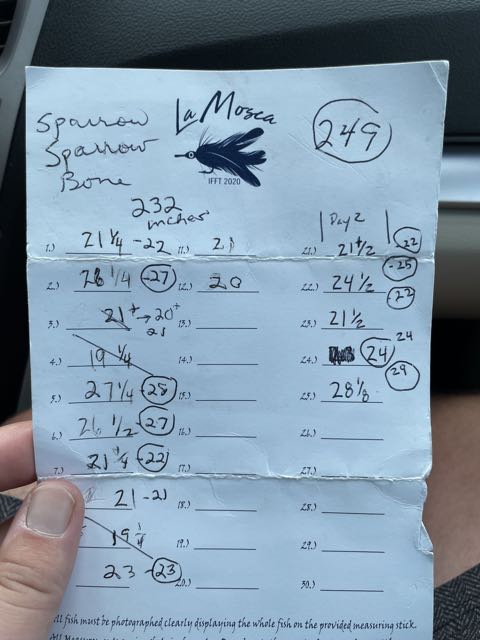 Sparrow
Sparrow
Bone
La Mosca
IFFT 2020
249
232
inches
Day 2
1.) 21 1/4 -22 11.) 21 21.) 21 1/2 22
2.) 26 1/4 -27 12.) 20 22.) 24 1/2 -25
3.) 21+ → 20+ 21 13.) 23.) 21 1/2 -22
4.) 19 1/4 14.) 24.) 24 24
5.) 27 1/4 -28 15.) 25.) 28 1/8 29
6.) 26 1/2 -27 16.) 26.)
7.) 21 1/4 -22 17.) 27.)
21 -21 18.) 28.)
19 1/4 19.) 29.)
23 -23 20.) 30.)
All fish must be photographed clearly displaying the whole fish on the provided measuring stick.